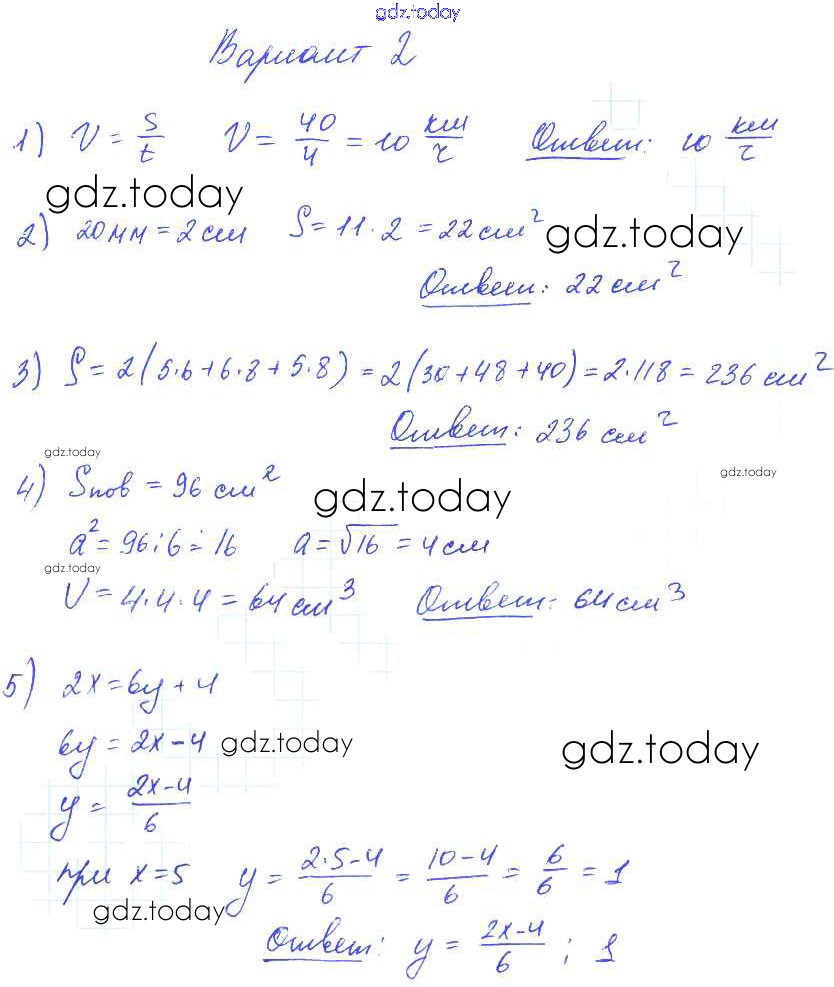 gdz.today
Вариант 2
1) V = s/t V = 40/4 = 10 км/ч Ответ: 10 км/ч
gdz.today
2) 20 мм = 2 см S = 11 · 2 = 22 см² gdz.today
Ответ: 22 см²
3) S = 2(5·6+6·8+5·8) = 2(30+48+40) = 2·118 = 236 см²
Ответ: 236 см²
gdz.today
gdz.today
4) Sпов = 96 см²
gdz.today
a² = 96:6 = 16 a = √16 = 4 см
gdz.today
V = 4·4·4 = 64 см³ Ответ: 64 см³
5) 2x = 6y + 4
6y = 2x - 4 gdz.today gdz.today
y = (2x-4)/6
при x = 5 y = (2·5-4)/6 = (10-4)/6 = 6/6 = 1
gdz.today
Ответ: y = (2x-4)/6 ; 1